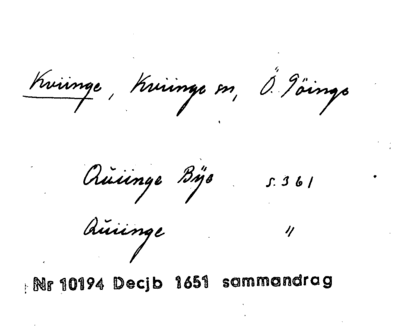 Kviinge, Kviinge sn, Ö. Göinge
Qŭiinge Bÿe s. 361
Qŭiinge "
Nr 10194 Decjb 1651 sammandrag